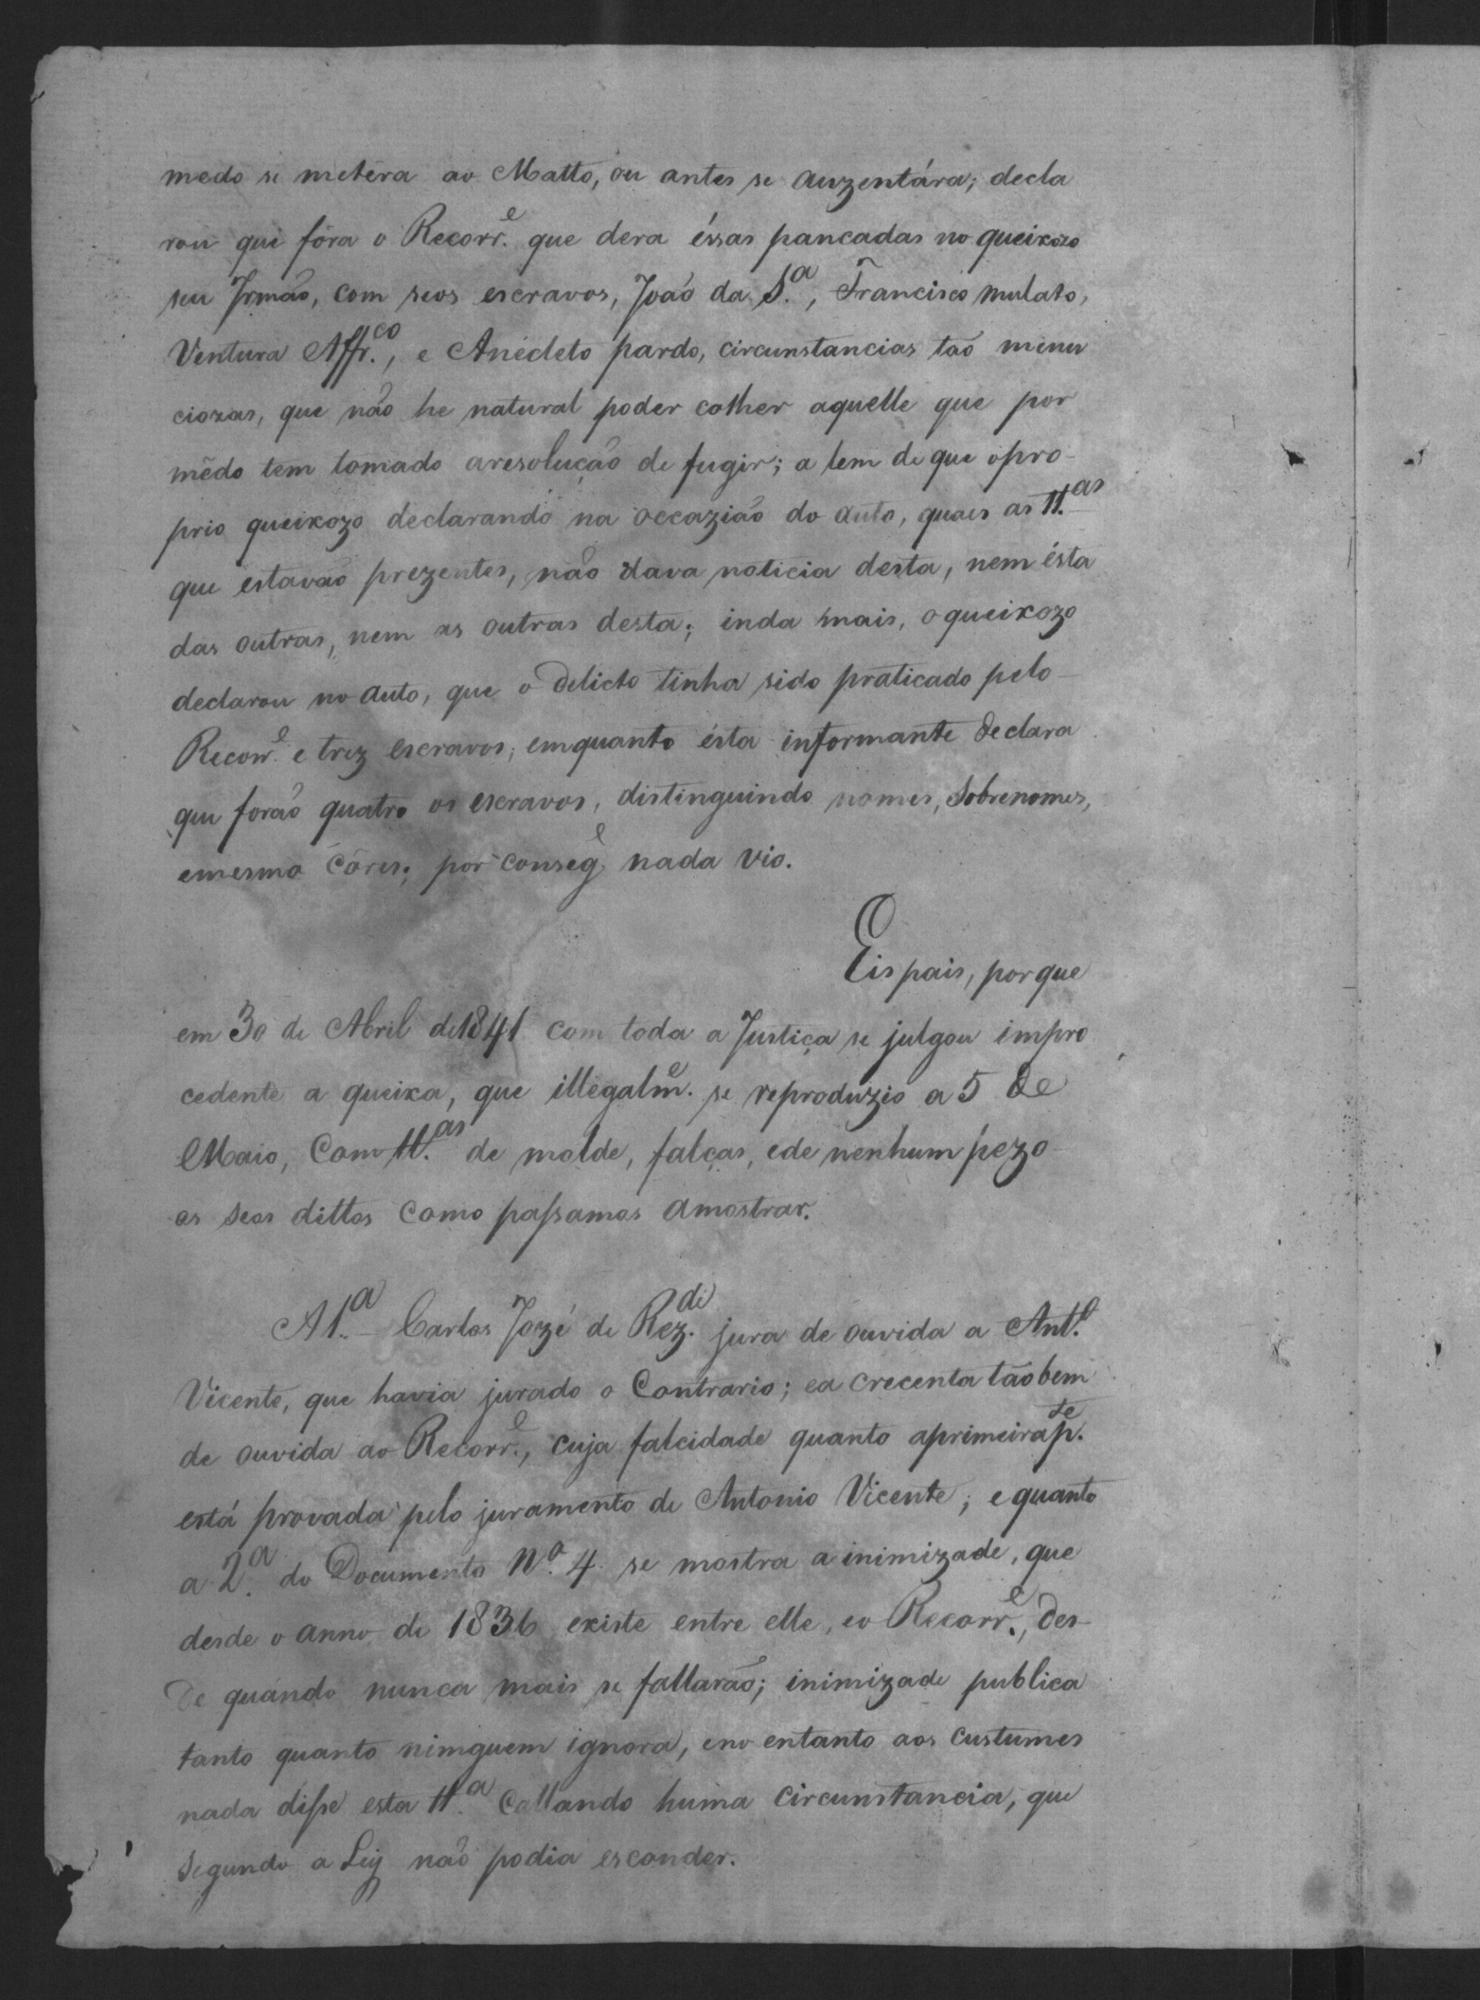 medo se metera ao Matto, ou antes se auzentára; decla
rou que fôra o Recorr.e que dera éssas pancadas no queixozo
seu Irmão, com seos escravos, João da S.a, Francisco mulato,
Ventura Affr.co, e Anecleto pardo, circunstancias tão minu
ciozas, que não he natural poder colher aquelle que por
mêdo tem tomado aresolução de fugir; a lem de que opro-
prio queixozo declarando na occazião do auto, quaes as tt.as
que estavão prezentes, não dava noticia desta, nem ésta
das outras, nem as outras desta; inda mais, oqueixozo
declarou no auto, que o delicto tinha sido praticado pelo
Recorr.e e trez escravos, emquanto ésta informante declara
que forão quatro os escravos, distinguindo nomes, Sobrenomes,
emesmo côres; por conseg.e nada vio.
Eis pois, por que
em 30 de Abril de 1841 com toda a Justiça se julgou impro
cedente a queixa, que illegalm.e se reproduzio a 5 de
Maio, Com tt.as de molde, falças, ede nenhum pezo
os seos dittos como passamos amostrar.
A 1.a Carlos Jozé de Rez.de jura de ouvida a Ant.o
Vicente, que havia jurado o Contrario; ea crecenta tãobem
de ouvida ao Recorr.e, cuja falcidade quanto aprimeira p.te
está provada pelo juramento de Antonio Vicente; e quanto
a 2.a do Documento N.o 4 se mostra a inimizade, que
desde o anno de 1836 existe entre elle, eo Recorr.e, des-
de quando nunca mais se fallarão; inimizade publica
tanto quanto nimguem ignora, eno entanto aos custumes
nada disse esta tt.a Callando huma circunstancia, que
segundo a Ley não podia esconder.